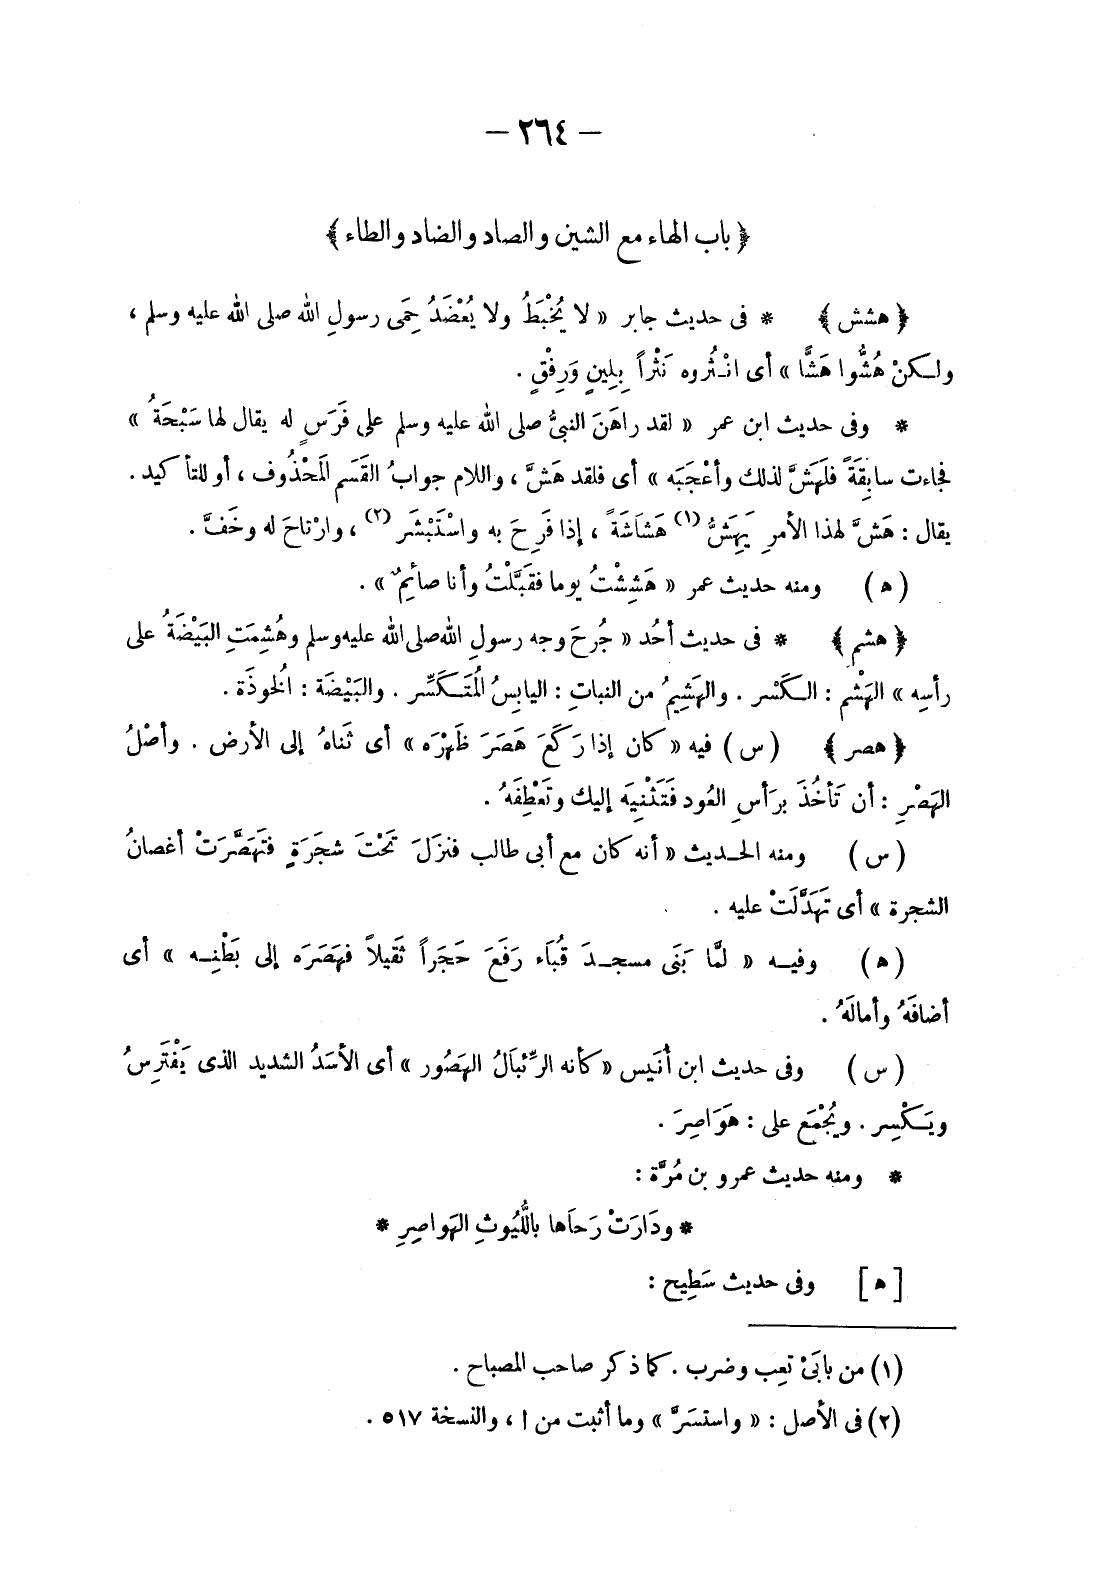 — ٢٦٤ —
﴿ باب الهاء مع الشين والصاد والضاد والطاء ﴾
﴿ هشش ﴾ * فى حديث جابر « لا يُخْبَطُ ولا يُعْضَدُ حِمَى رسولِ الله صلى الله عليه وسلم ،
ولكنْ هُشُّوا هَشًّا » أى انْثُروه نَثْراً بِلِينٍ وَرِفْقٍ .
* وفى حديث ابن عمر « لقد راهَنَ النبىُّ صلى الله عليه وسلم على فَرَسٍ له يقال لها سَبْحَةُ »
فجاءت سابِقَةً فلَهَشَّ لذلك وأعْجَبَه » أى فلقد هَشَّ ، واللام جوابُ القَسَم المَحْذُوف ، أو للتأكيد .
يقال : هَشَّ لهذا الأمرِ يَهِشُّ (١) هَشَاشَةً ، إذا فَرِحَ به واسْتَبْشَر (٢) ، وارْتاحَ له وخَفَّ .
(ﻫ) ومنه حديث عمر « هَشِشْتُ يوما فقَبَّلْتُ وأنا صائمٌ » .
﴿ هشم ﴾ * فى حديث أحُد « جُرحَ وجه رسولِ الله صلى الله عليه وسلم وهُشِمَتِ البَيْضَةُ على
رأسِه » الهَشْم : الكَسْر . والهَشِيمُ من النبات : اليابِسُ المُتَكَسِّر . والبَيْضَة : الخُوذَة .
﴿ هصر ﴾ (س) فيه « كان إذا رَكَعَ هَصَرَ ظَهْرَه » أى ثَناهُ إلى الأرض . وأصْلُ
الهَصْرِ : أن تَأخُذَ برَأسِ العُود فتَثْنِيَه إليك وتَعْطِفَهُ .
(س) ومنه الحديث « أنه كان مع أبى طالب فنزَلَ تَحْتَ شجَرَةٍ فتَهَصَّرَتْ أغصانُ
الشجرة » أى تَهَدَّلَتْ عليه .
(ﻫ) وفيه « لمَّا بَنَى مسجدَ قُبَاء رَفَعَ حَجَراً ثَقيلاً فهَصَرَه إلى بَطْنِه » أى
أضافَهُ وأمالَهُ .
(س) وفى حديث ابن أُنَيس « كأنه الرِّئبَالُ الهَصُور » أى الأسَدُ الشديد الذى يَفْتَرِسُ
ويَكْسِر . ويُجْمَع على : هَوَاصِرَ .
* ومنه حديث عمرو بن مُرَّة :
* ودَارَتْ رَحَاَها باللُّيُوثِ الهَواصِرِ *
[ﻫ] وفى حديث سَطِيح :
(١) من بابَىْ تعِب وضرب . كما ذكر صاحب المصباح .
(٢) فى الأصل : « واستسَرَّ » وما أثبت من ا ، والنسخة ٥١٧ .